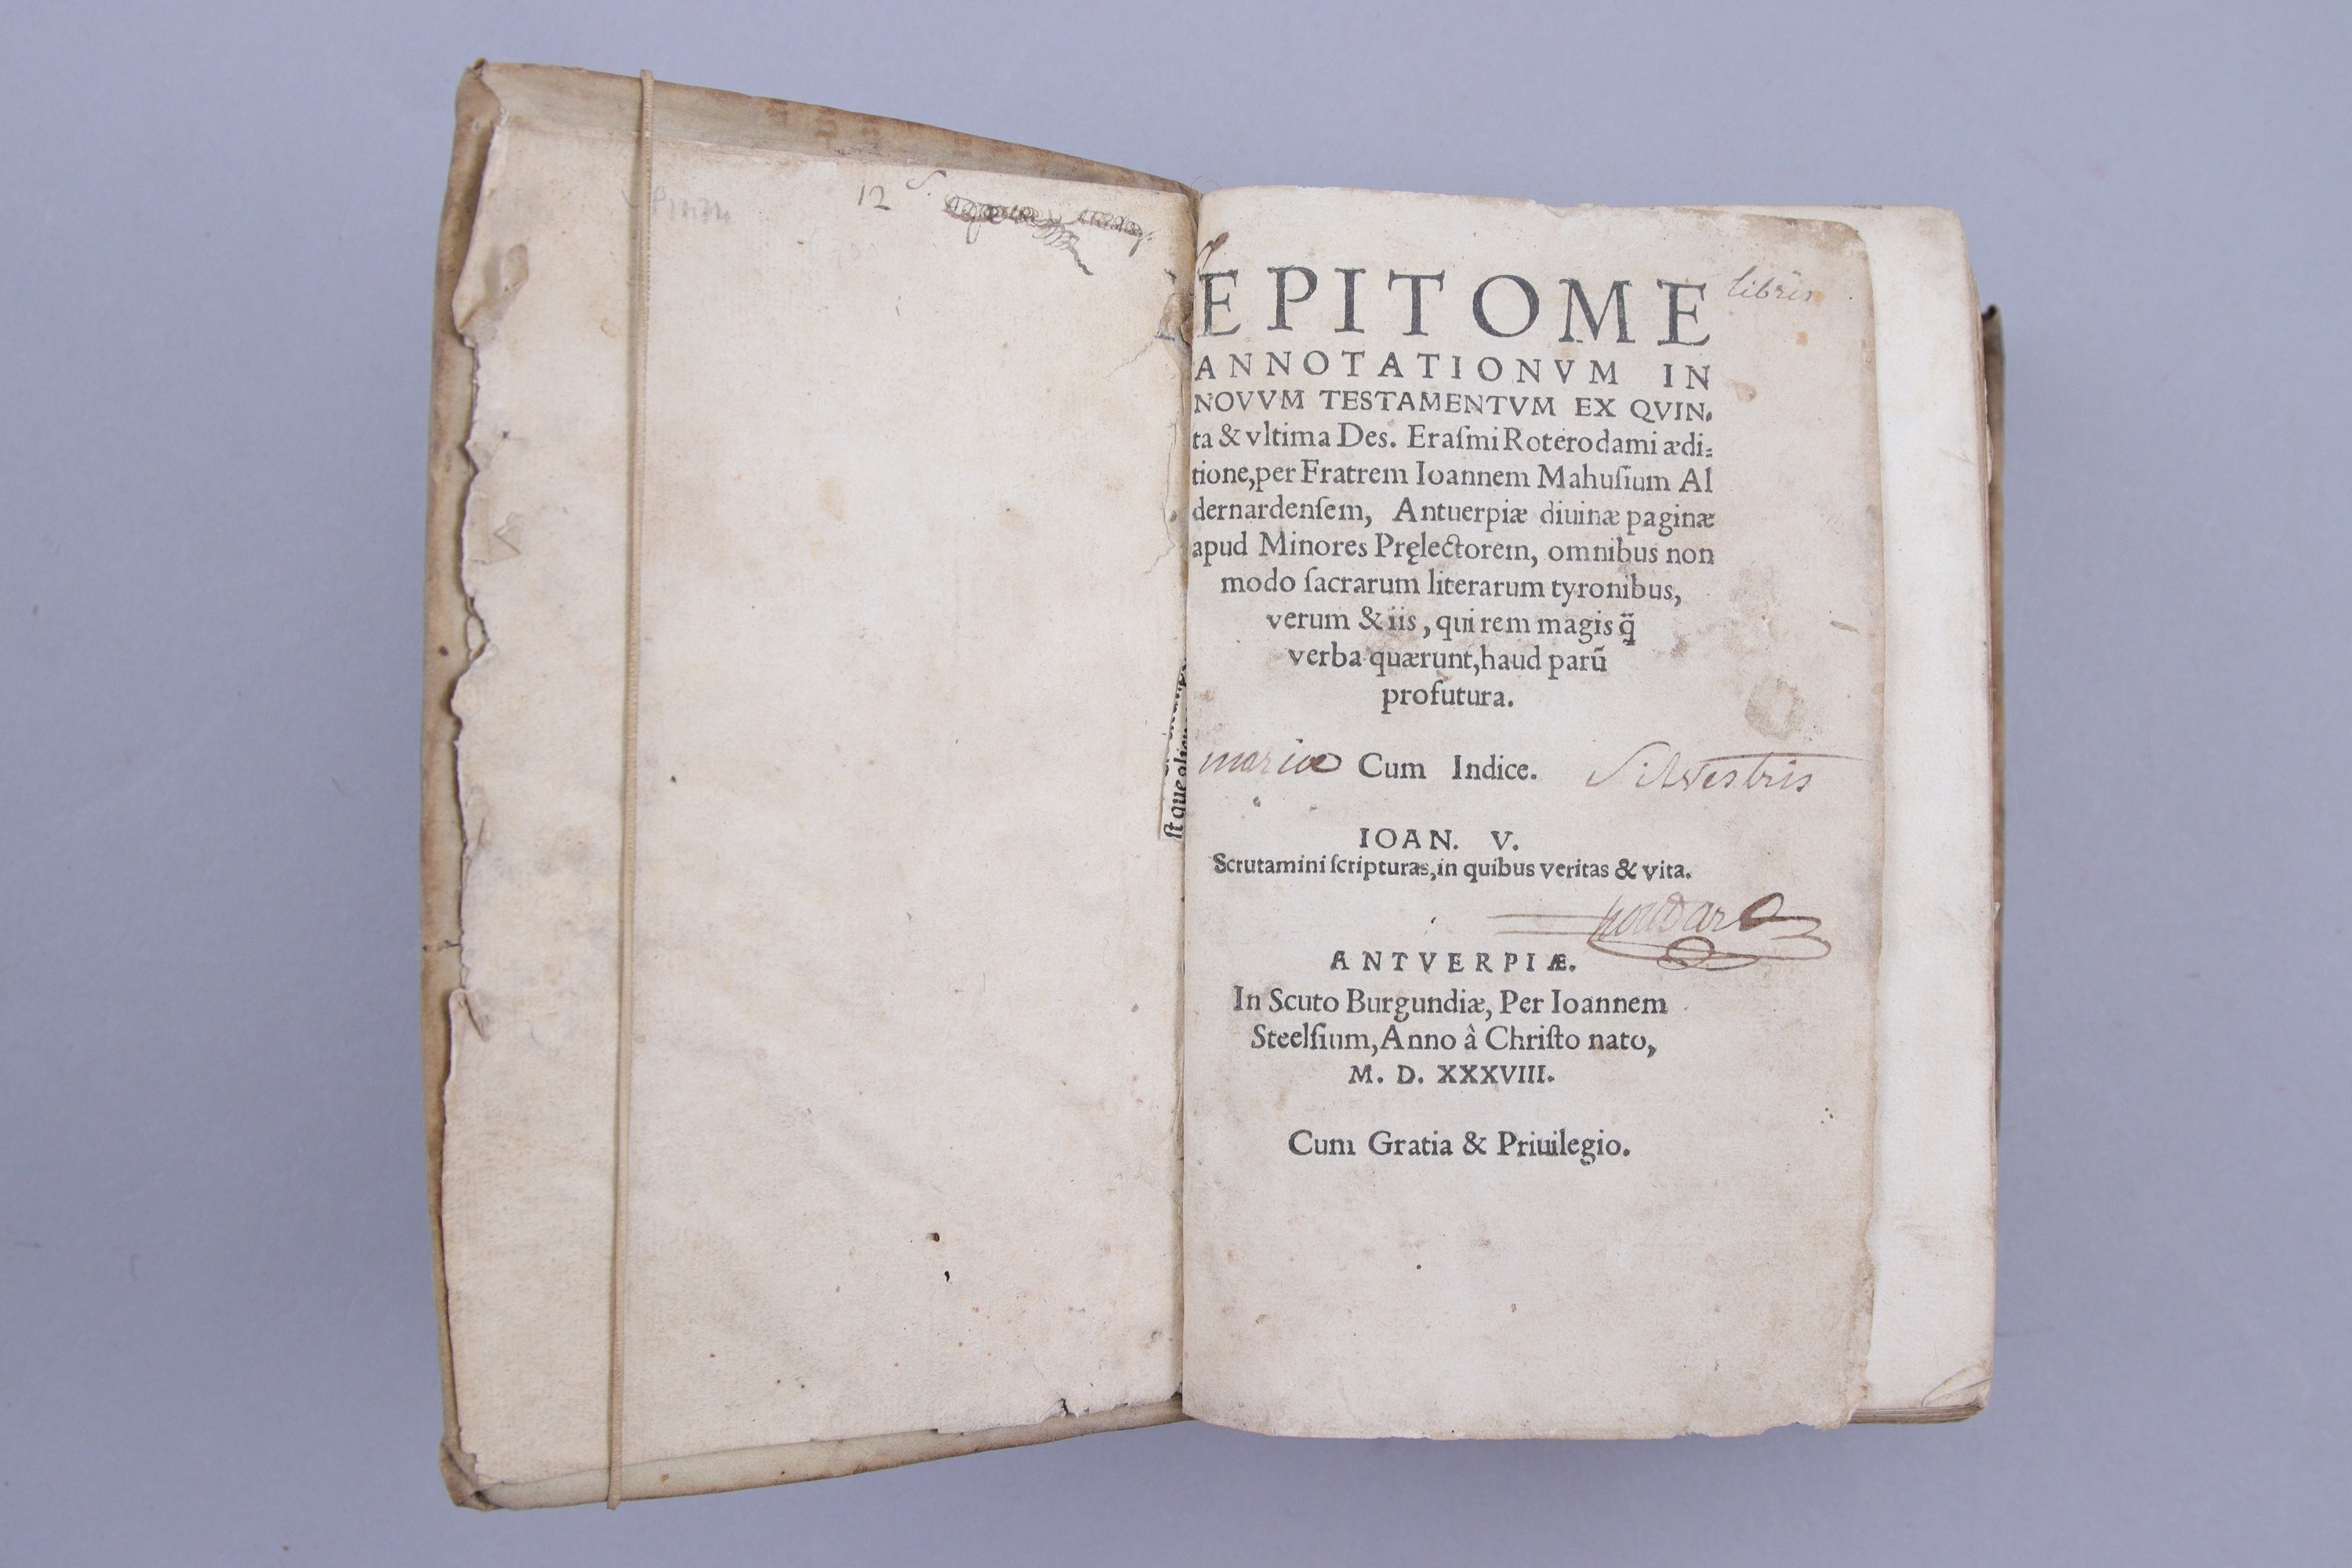 12
EPITOME
libris
ANNOTATIONVM IN
NOVVM TESTAMENTVM EX QVIN.
ta & vltima Des. Eraſmi Roterodami ædi⸗
tione,per Fratrem Ioannem Mahuſium Al
dernardenſem, Antuerpiæ diuinæ paginæ
apud Minores Pręlectorem, omnibus non
modo ſacrarum literarum tyronibus,
verum & iis, qui rem magis q̃
verba quærunt,haud parũ
profutura.
mariæ Cum Indice. Silvestris
IOAN. V.
Scrutamini ſcripturas,in quibus veritas & vita.
ANTVERPIÆ.
In Scuto Burgundiæ, Per Ioannem
Steelſium,Anno à Chriſto nato,
M. D. XXXVIII.
Cum Gratia & Priuilegio.